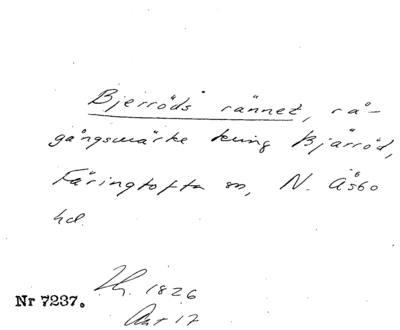 Bjerröds rännet, rå-
gångsmärke kring Bjärröd,
Färingtofta sn, N. Åsbo
hd.
Lh. 1826
Akt 17
Nr 7237.